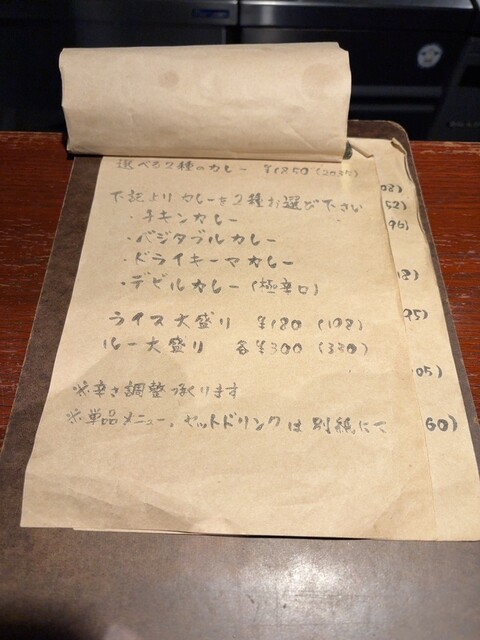 選べる2種のカレー ¥1850 (2035)
下記よりカレーを2種お選び下さい
・チキンカレー
・ベジタブルカレー
・ドライキーマカレー
・デビルカレー (極辛口)
ライス大盛り ¥180 (198)
ルー大盛り 各¥300 (330)
※辛さ調整承ります
※単品メニュー、セットドリンクは別紙にて
52)
96)
18)
95)
05)
60)